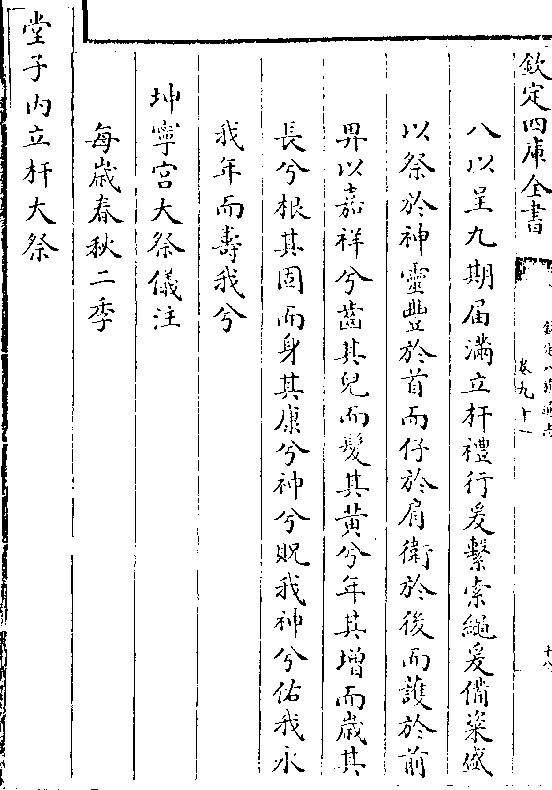 欽定四庫全書
欽定八旗通志
卷九十一
十八
八以呈九期届滿立杆禮行爰繫索繩爰備粢盛
以祭於神靈豐於首而仔於肩衛於後而護於前
畀以嘉祥兮齒其兒而髮其黃兮年其增而歲其
長兮根其固而身其康兮神兮貺我神兮佑我永
我年而壽我兮
坤寧宮大祭儀注
每歲春秋二季
堂子内立杆大祭